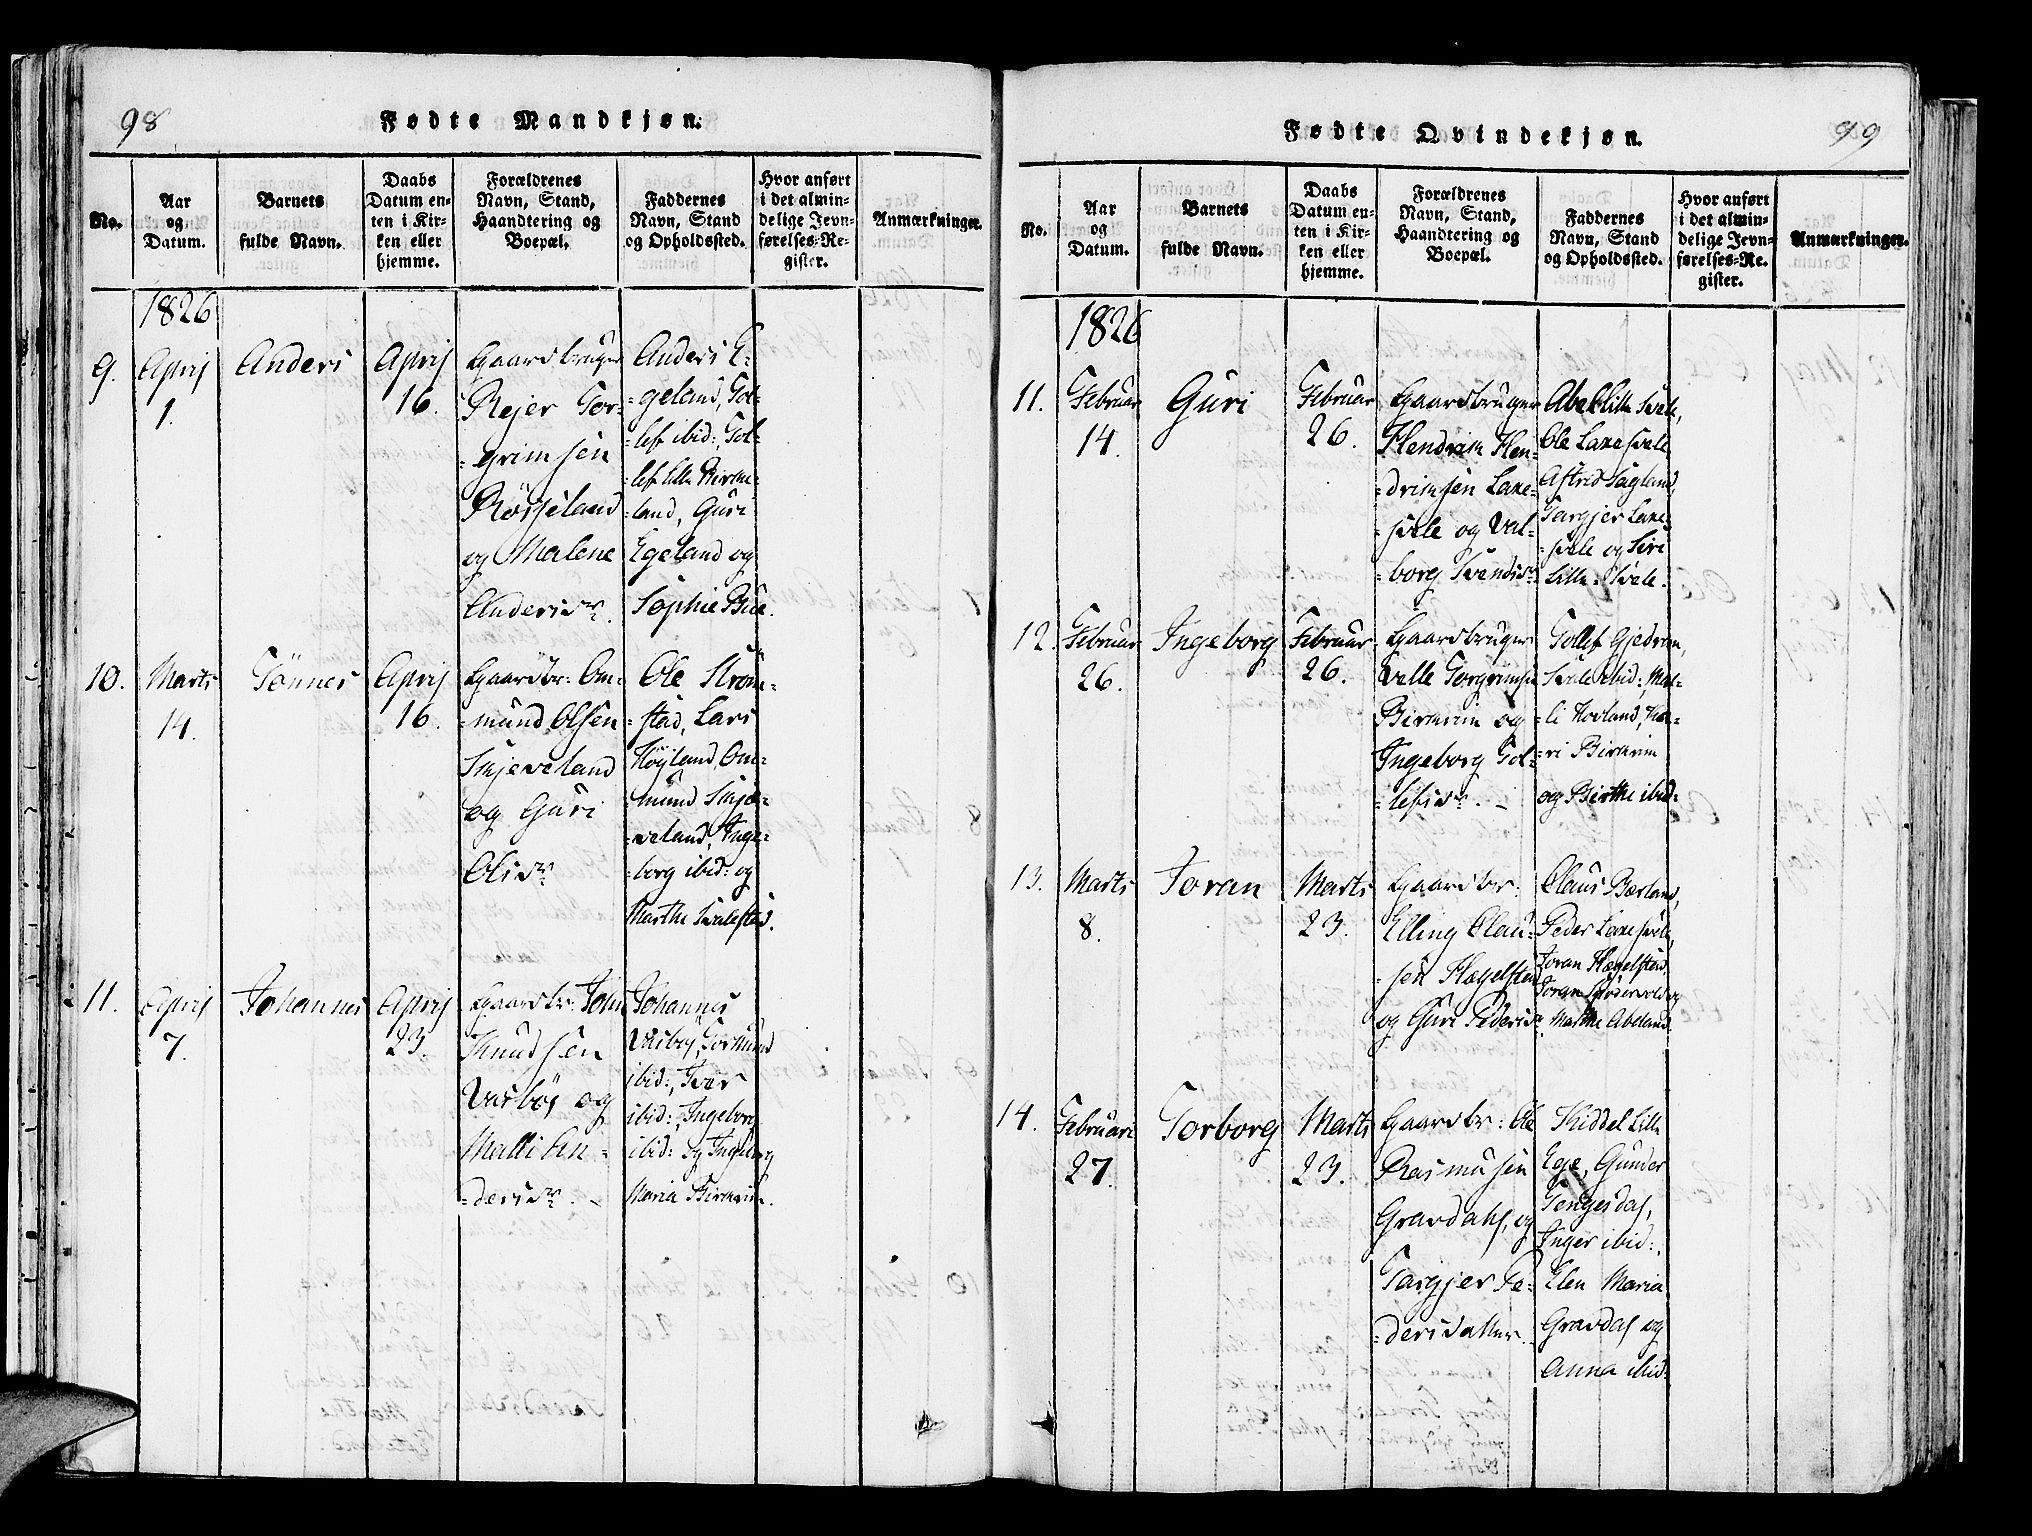 98
Fødte Mandkjøn.
No.
Aar
og
Datum.
Barnets
fulde Navn.
Daabs
Datum en-
ten i Kir-
ken eller
hjemme.
Forældrenes
Navn, Stand,
Haandtering og
Boepæl.
Faddernes
Navn, Stand
og Opholdssted.
Hvor anført
i det almin-
delige Jevn-
førelses-Re-
gister.
Anmærkninger.
1826
9.
April
1.
Anders
April
16.
Gaardbruger
Rejer Tor-
-grimsen
Røsseland
og Malene
Andersdr.
Anders E-
-geland, Tol-
-lef ibid:, Tol-
-lef Lille Birke-
-land, Guri
Egeland og
Sophie Bue.
10.
Marts
14.
Tønnes
April
16.
Gaardbr: Om-
-mund Olsen
Skjeveland
og Guri
Olisdr.
Ole Strøm-
-stad, Lars
Høyland, Om-
-mund Skjæ-
-veland, Inge-
-borg ibid: og
Marthe Svalestad.
11.
April
7.
Johannes
April
23.
Gaardbr: John
Knudsen
Vasbøe og
Malli An-
-dersdr. -
Johannes
Vasbøe, Tormund
ibid:, Iver
ibid:, Ingeborg
ibid: og Ingeborg
Maria Birkrim.
Fødte Qvindekjøn.
99
No.
Aar
og
Datum.
Barnets
fulde Navn.
Daabs
Datum en-
ten i Kir-
ken eller
hjemme.
Forældrenes
Navn, Stand,
Haandtering og
Boepæl.
Faddernes
Navn, Stand
og Opholdssted.
Hvor anført
i det almin-
delige Jevn-
førelses-Re-
gister.
Anmærkninger.
1826
11.
Februar
14.
Guri
Februar
26.
Gaardbruger
Hendrik Hen-
-driksen Laxe-
-svele og Val-
-borg Svendsdr.
Abel Lille Svele,
Ole Laxesvele
Astrid Sagland,
Targjer Laxe-
-svele og Siri
Lille-Svele.
12.
Februar
26.
Ingeborg
Februar
26.
Gaardbruger
Valle Torgrimsen
Birkrim og
Ingeborg Tol-
-lefsdr. -
Tollef Gjedrem,
Svele ibid:, Mal-
-li Hovland, Ka-
-ri Birkrim
og Birthe ibid:
13.
Marts
8.
Joran
Marts
23.
Gaardbr:
Elling Olau-
-sen Hægelstad
og Guri Pedersdr
Olaus Berland,
Peder Laxesvele,
Joran Hægelstad,
og
Marthe Abeland.
14.
Februari
27.
Torborg
Marts
23.
Gaardbr: Ole
Rasmusen
Gravdahl, og
Targjer Pe-
-dersdatter.
Kiddel Lille
Ege, Gunder
Tengesdal,
Inger ibid:,
Elen Maria
Gravdal og
Anna ibid: